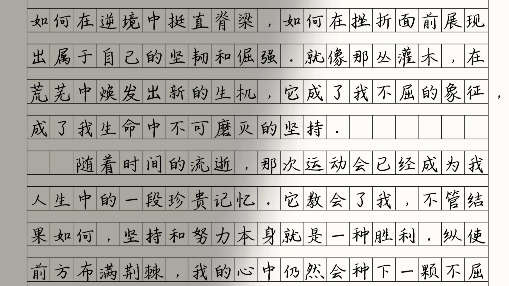 如何在逆境中挺直脊梁，如何在挫折面前展现
出属于自己的坚韧和倔强．就像那丛灌木，在
荒芜中焕发出新的生机，它成了我不屈的象征，
成了我生命中不可磨灭的坚持．
随着时间的流逝，那次运动会已经成为我
人生中的一段珍贵记忆．它教会了我，不管结
果如何，坚持和努力本身就是一种胜利．纵使
前方布满荆棘，我的心中仍然会种下一颗不屈